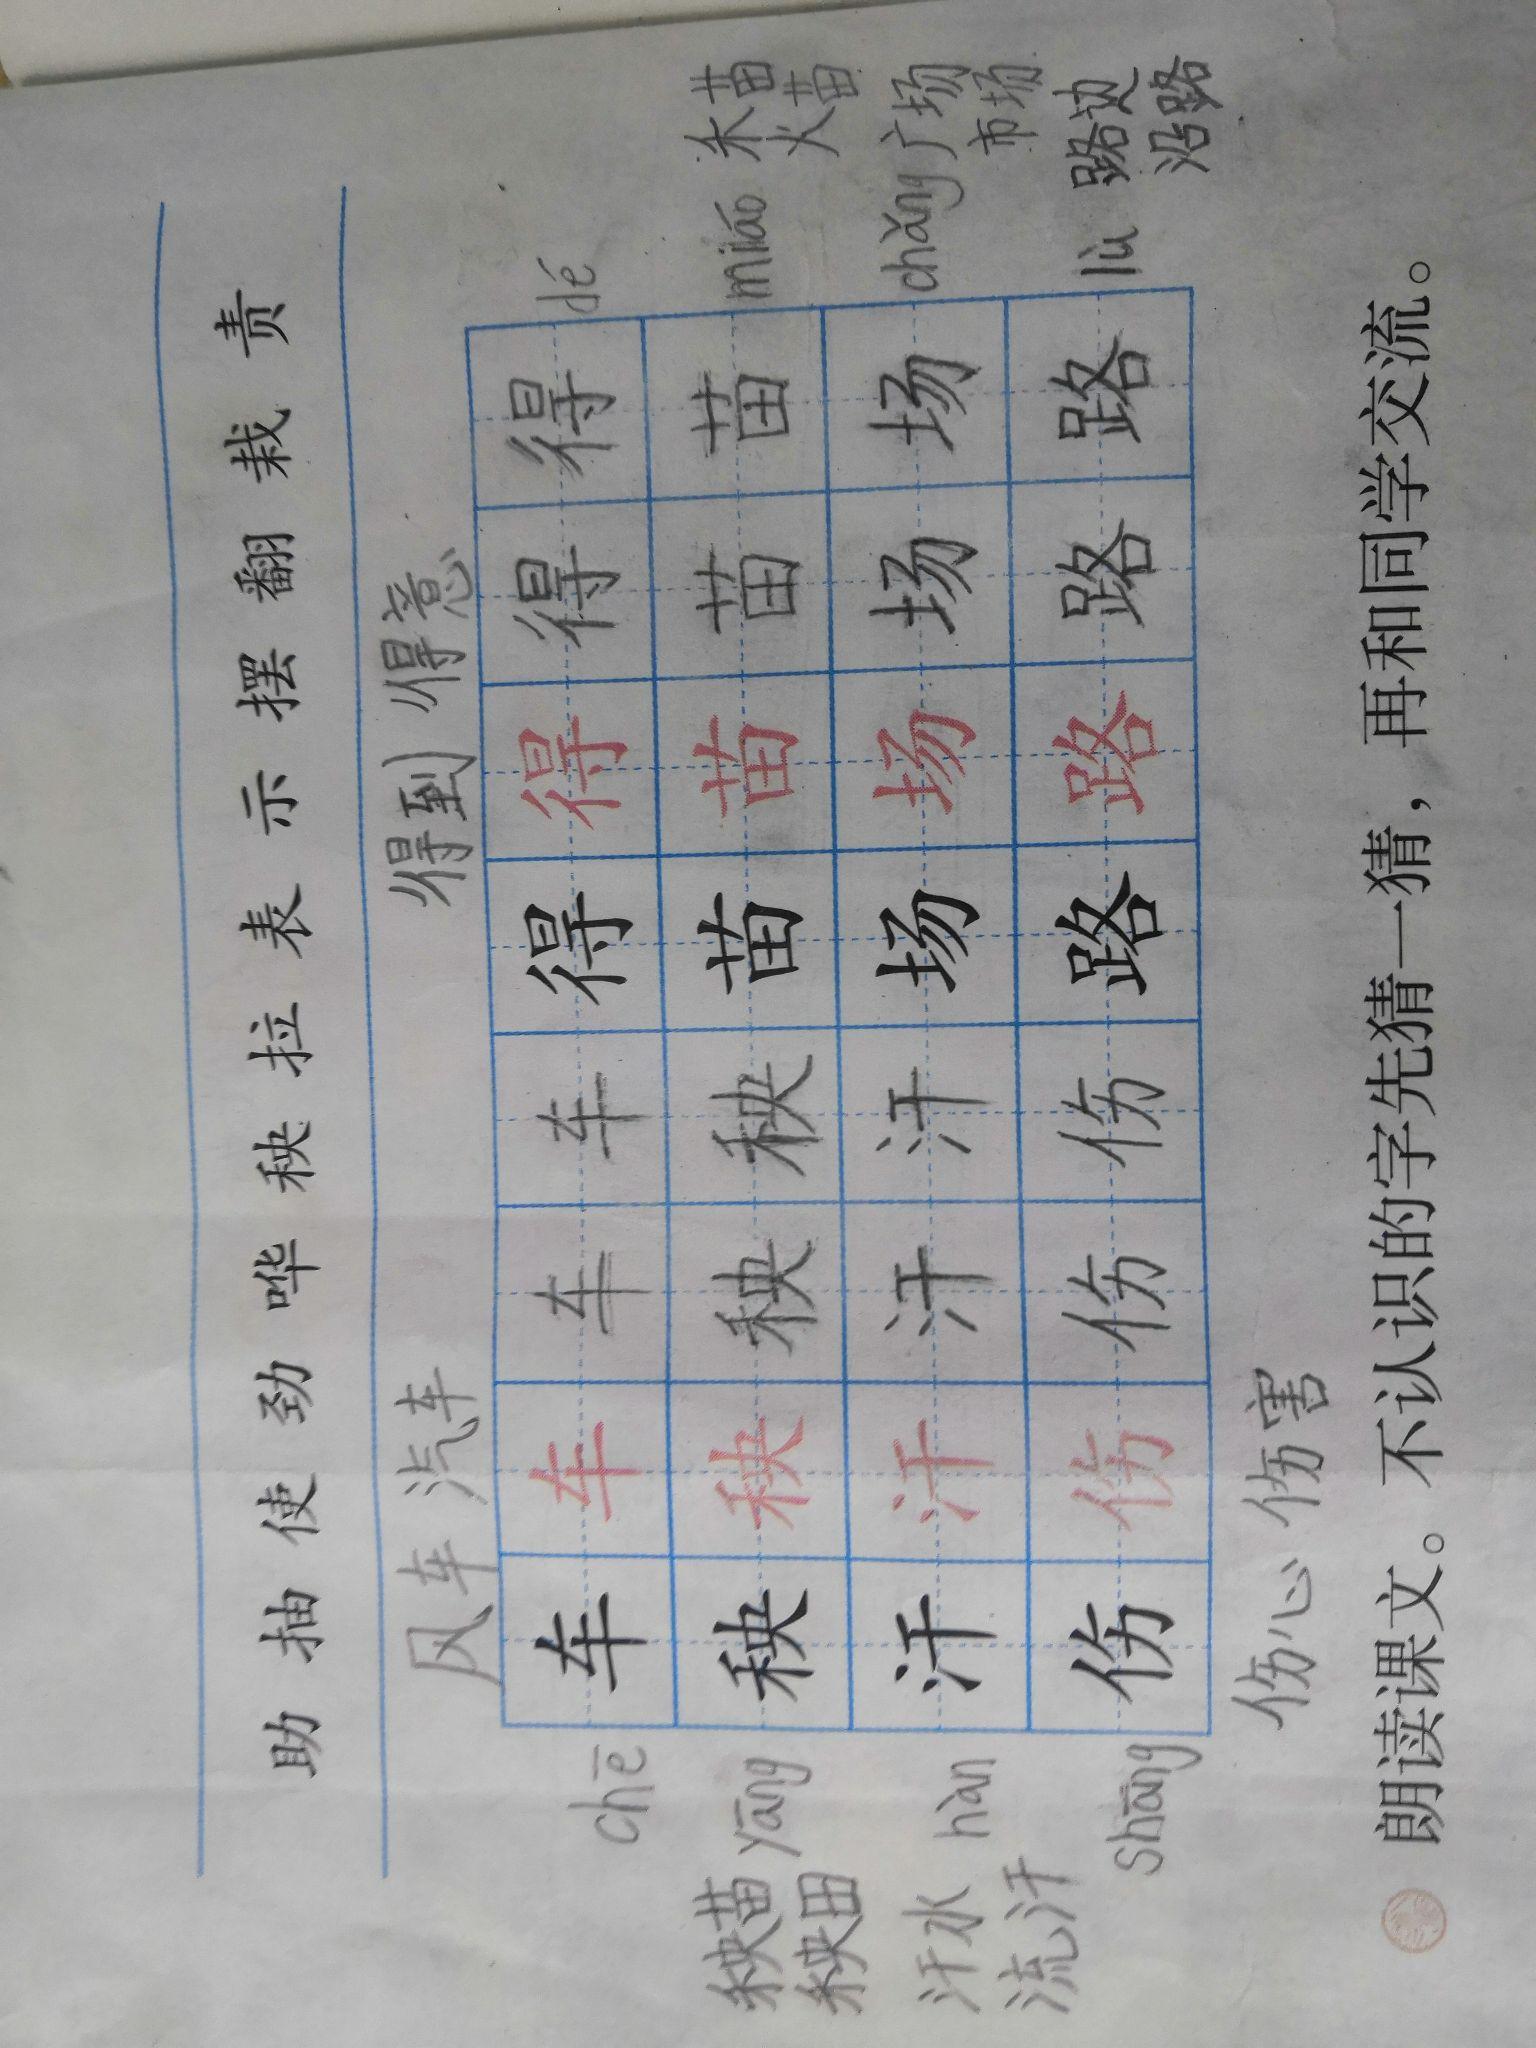 助 抽 使 劲 哗 秧 拉 表 示 摆 翻 栽 责
风车 汽车 得到 得意
chē 车 车 车 车 得 得 得 得 dé
秧苗 yāng 秧 秧 秧 秧 苗 苗 苗 苗 miáo 禾苗
秧田 火苗
汗水 hàn 汗 汗 汗 汗 场 场 场 场 chǎng 广场
流汗 市场
shāng 伤 伤 伤 伤 路 路 路 路 lù 路边
沿路
伤心 伤害
朗读课文。不认识的字先猜一猜，再和同学交流。